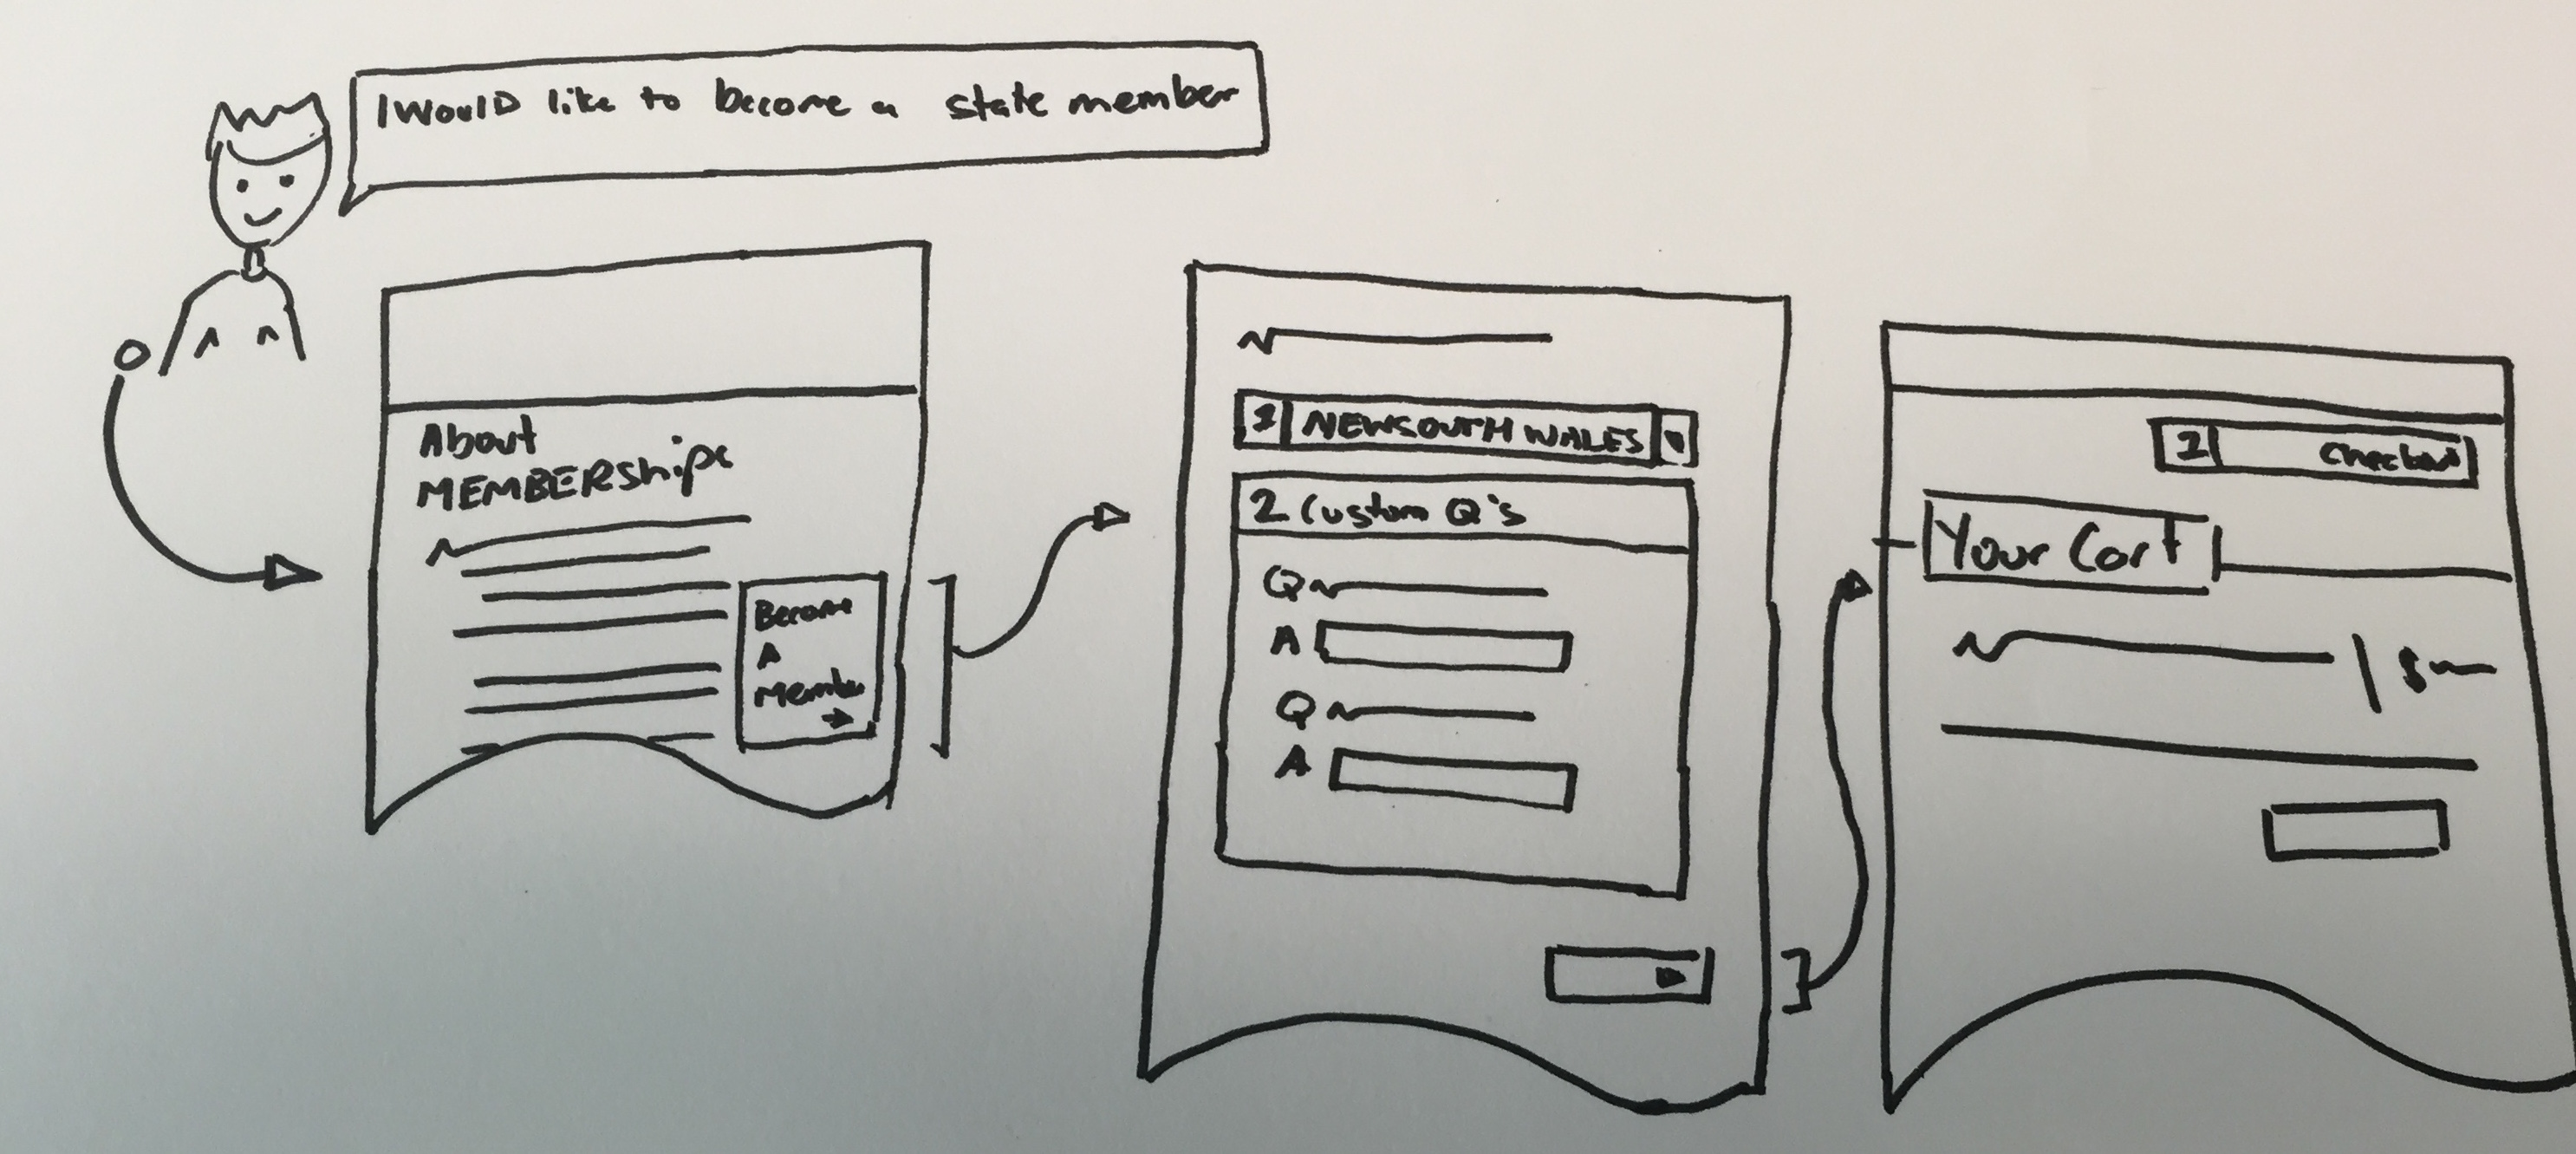 I WOULD like to become a state member
About
MEMBERShips
Become
A
Member
1 NEWSOUTH WALES
2 Custom Q's
Q
A
Q
A
1 Checkout
Your Cart
$